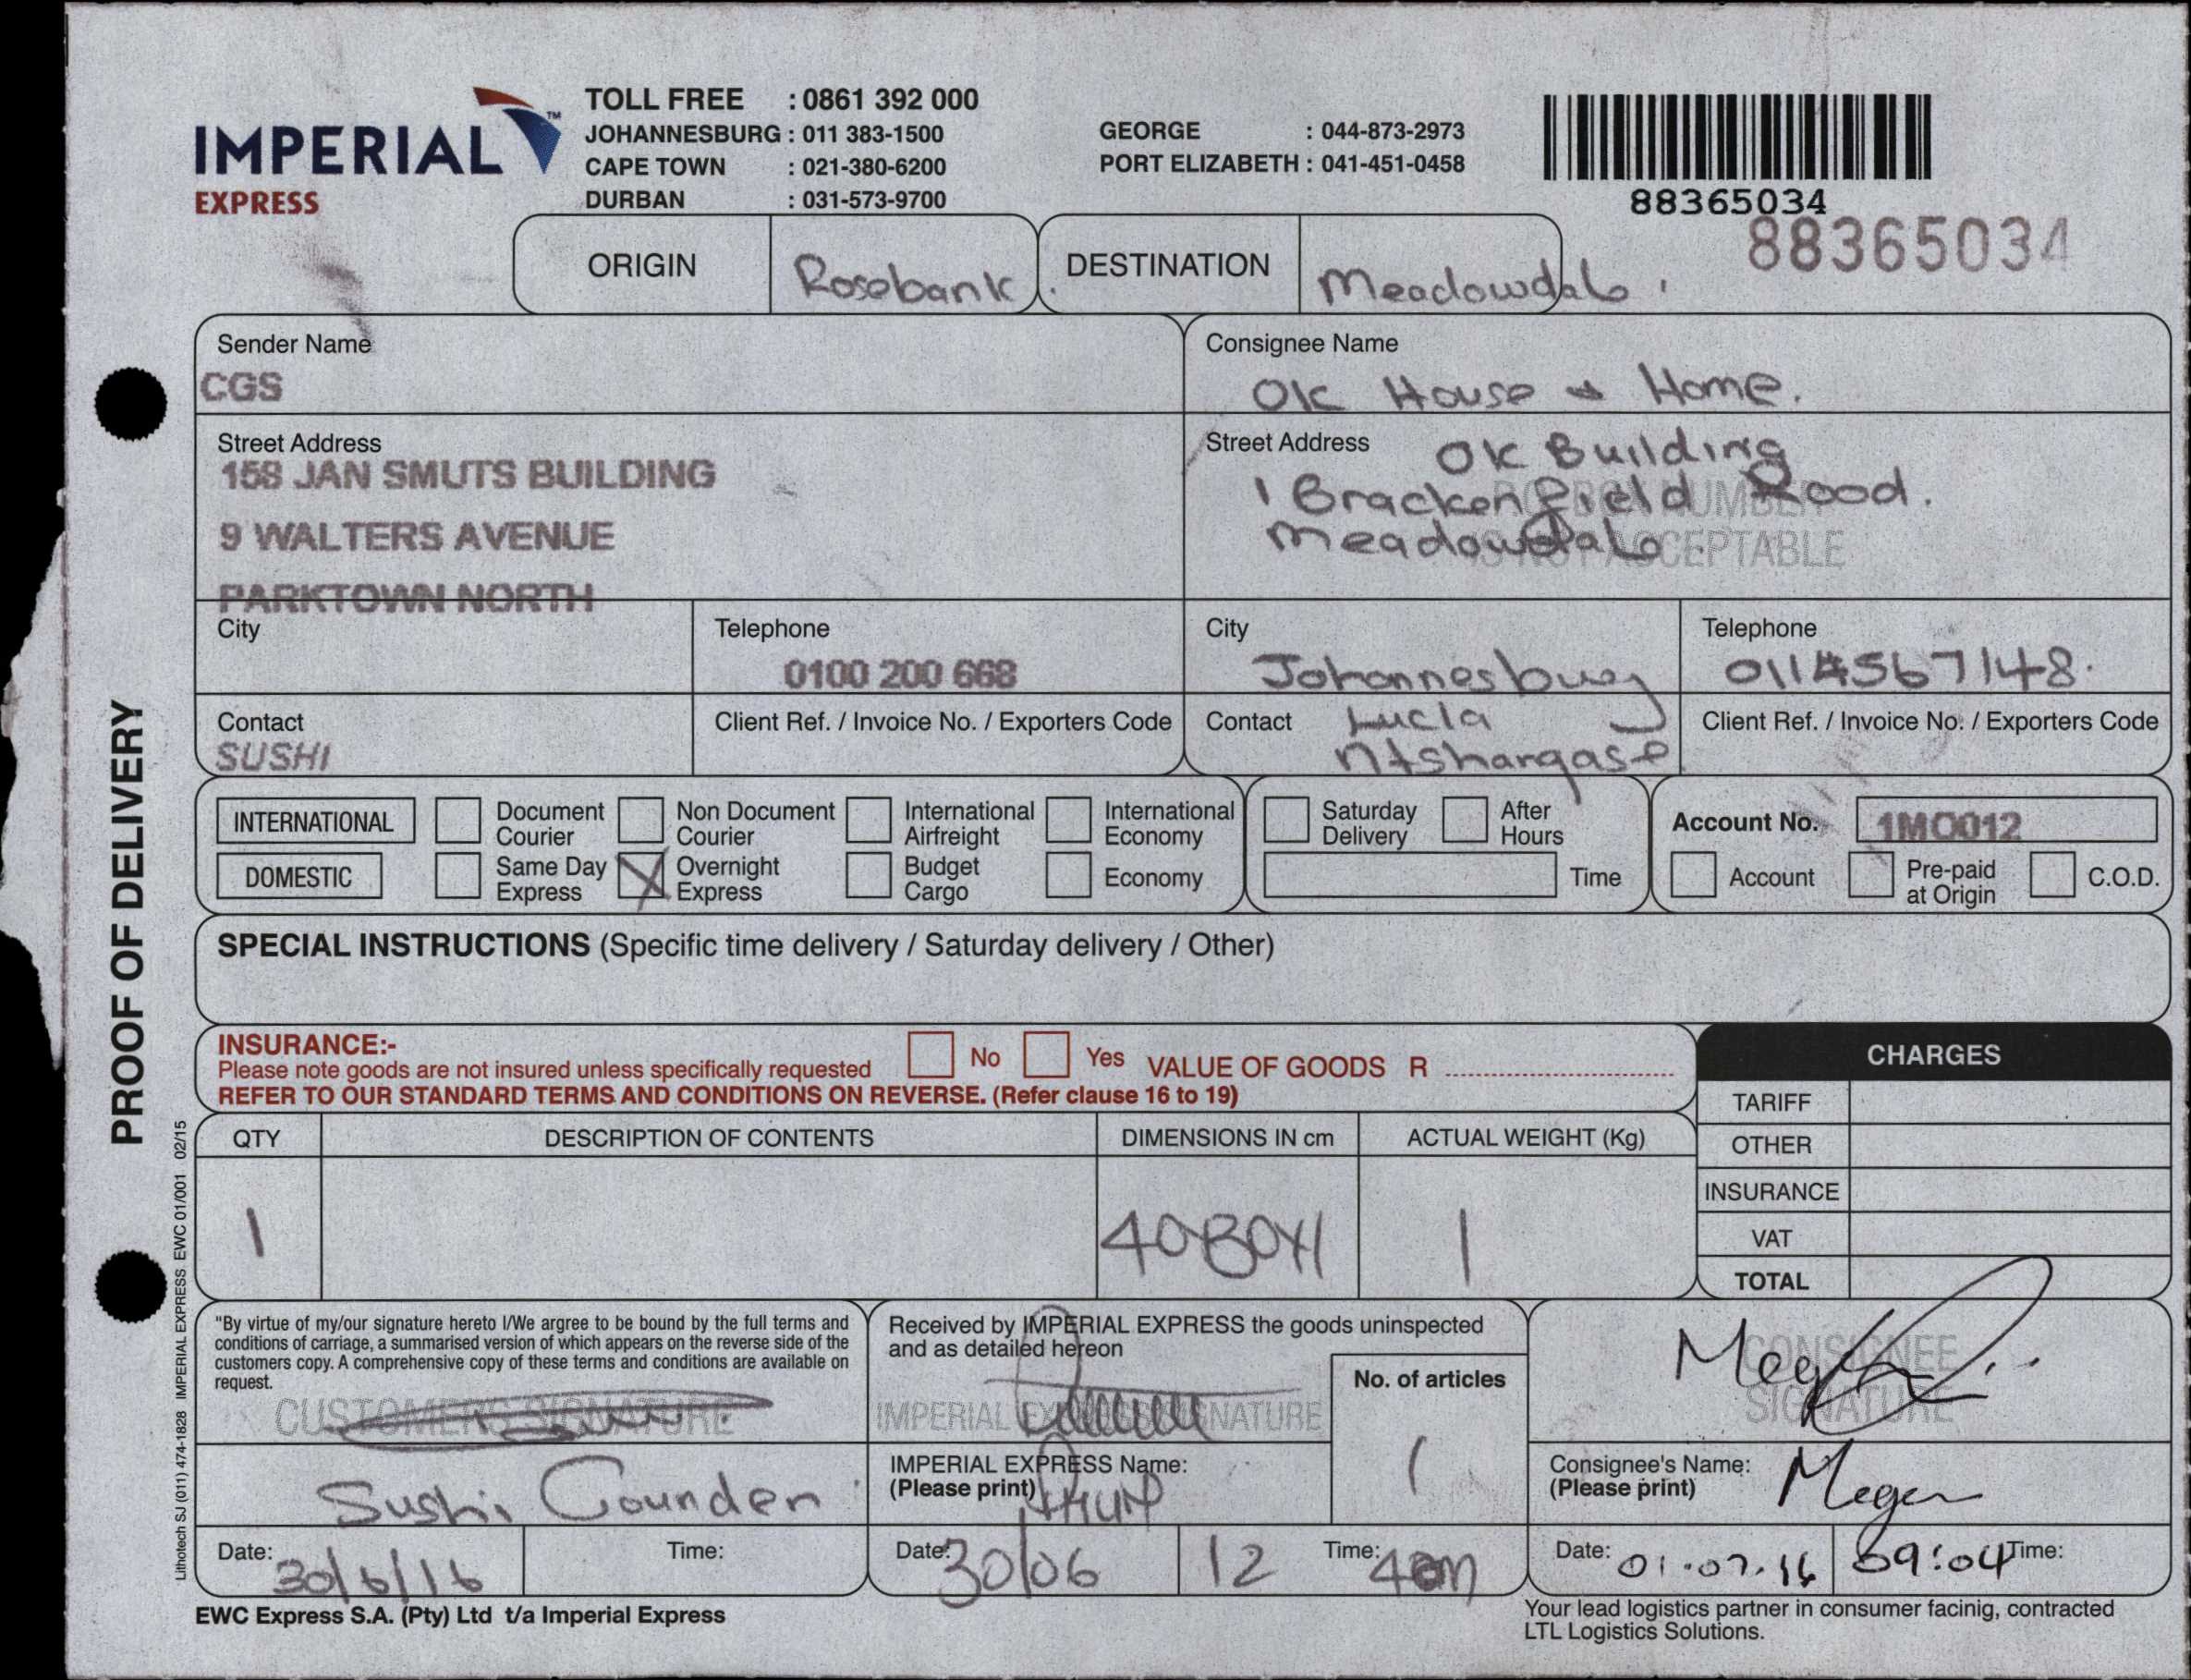 IMPERIAL™
EXPRESS
TOLL FREE : 0861 392 000
JOHANNESBURG : 011 383-1500
CAPE TOWN : 021-380-6200
DURBAN : 031-573-9700
GEORGE : 044-873-2973
PORT ELIZABETH : 041-451-0458
88365034
88365034
ORIGIN Rosebank. DESTINATION Meadowdale.
Sender Name
CGS
Consignee Name
OK House & Home.
Street Address
158 JAN SMUTS BUILDING
9 WALTERS AVENUE
PARKTOWN NORTH
Street Address OK Building
1 Brackenfield Road.
Meadowdale.
PO BOX NUMBER
IS NOT ACCEPTABLE
City
Telephone
0100 200 668
City
Johannesburg
Telephone
0114567148.
Contact
SUSHI
Client Ref. / Invoice No. / Exporters Code
Contact Lucia
Ntshangase
Client Ref. / Invoice No. / Exporters Code
INTERNATIONAL
Document Courier
Non Document Courier
International Airfreight
International Economy
DOMESTIC
Same Day Express
X Overnight Express
Budget Cargo
Economy
Saturday Delivery
After Hours
Time
Account No. 1MO012
Account
Pre-paid at Origin
C.O.D.
SPECIAL INSTRUCTIONS (Specific time delivery / Saturday delivery / Other)
INSURANCE:-
Please note goods are not insured unless specifically requested
No Yes VALUE OF GOODS R ....................
REFER TO OUR STANDARD TERMS AND CONDITIONS ON REVERSE. (Refer clause 16 to 19)
CHARGES
TARIFF
OTHER
INSURANCE
VAT
TOTAL
QTY DESCRIPTION OF CONTENTS DIMENSIONS IN cm ACTUAL WEIGHT (Kg)
1 40x30x1 1
"By virtue of my/our signature hereto I/We argree to be bound by the full terms and
conditions of carriage, a summarised version of which appears on the reverse side of the
customers copy. A comprehensive copy of these terms and conditions are available on
request.
CUSTOMERS SIGNATURE
Sushi Gounden
Date: 30/6/16 Time:
Received by IMPERIAL EXPRESS the goods uninspected
and as detailed hereon
IMPERIAL EXPRESS SIGNATURE
No. of articles
1
IMPERIAL EXPRESS Name:
(Please print)
Date: 30/06 12 Time:
CONSIGNEE
SIGNATURE
Consignee's Name:
(Please print) Megan
Date: 01.07.16 09:04 Time:
EWC Express S.A. (Pty) Ltd t/a Imperial Express
Your lead logistics partner in consumer facinig, contracted
LTL Logistics Solutions.
PROOF OF DELIVERY
Lithotech SJ (011) 474-1828 IMPERIAL EXPRESS EWC 01/001 02/15